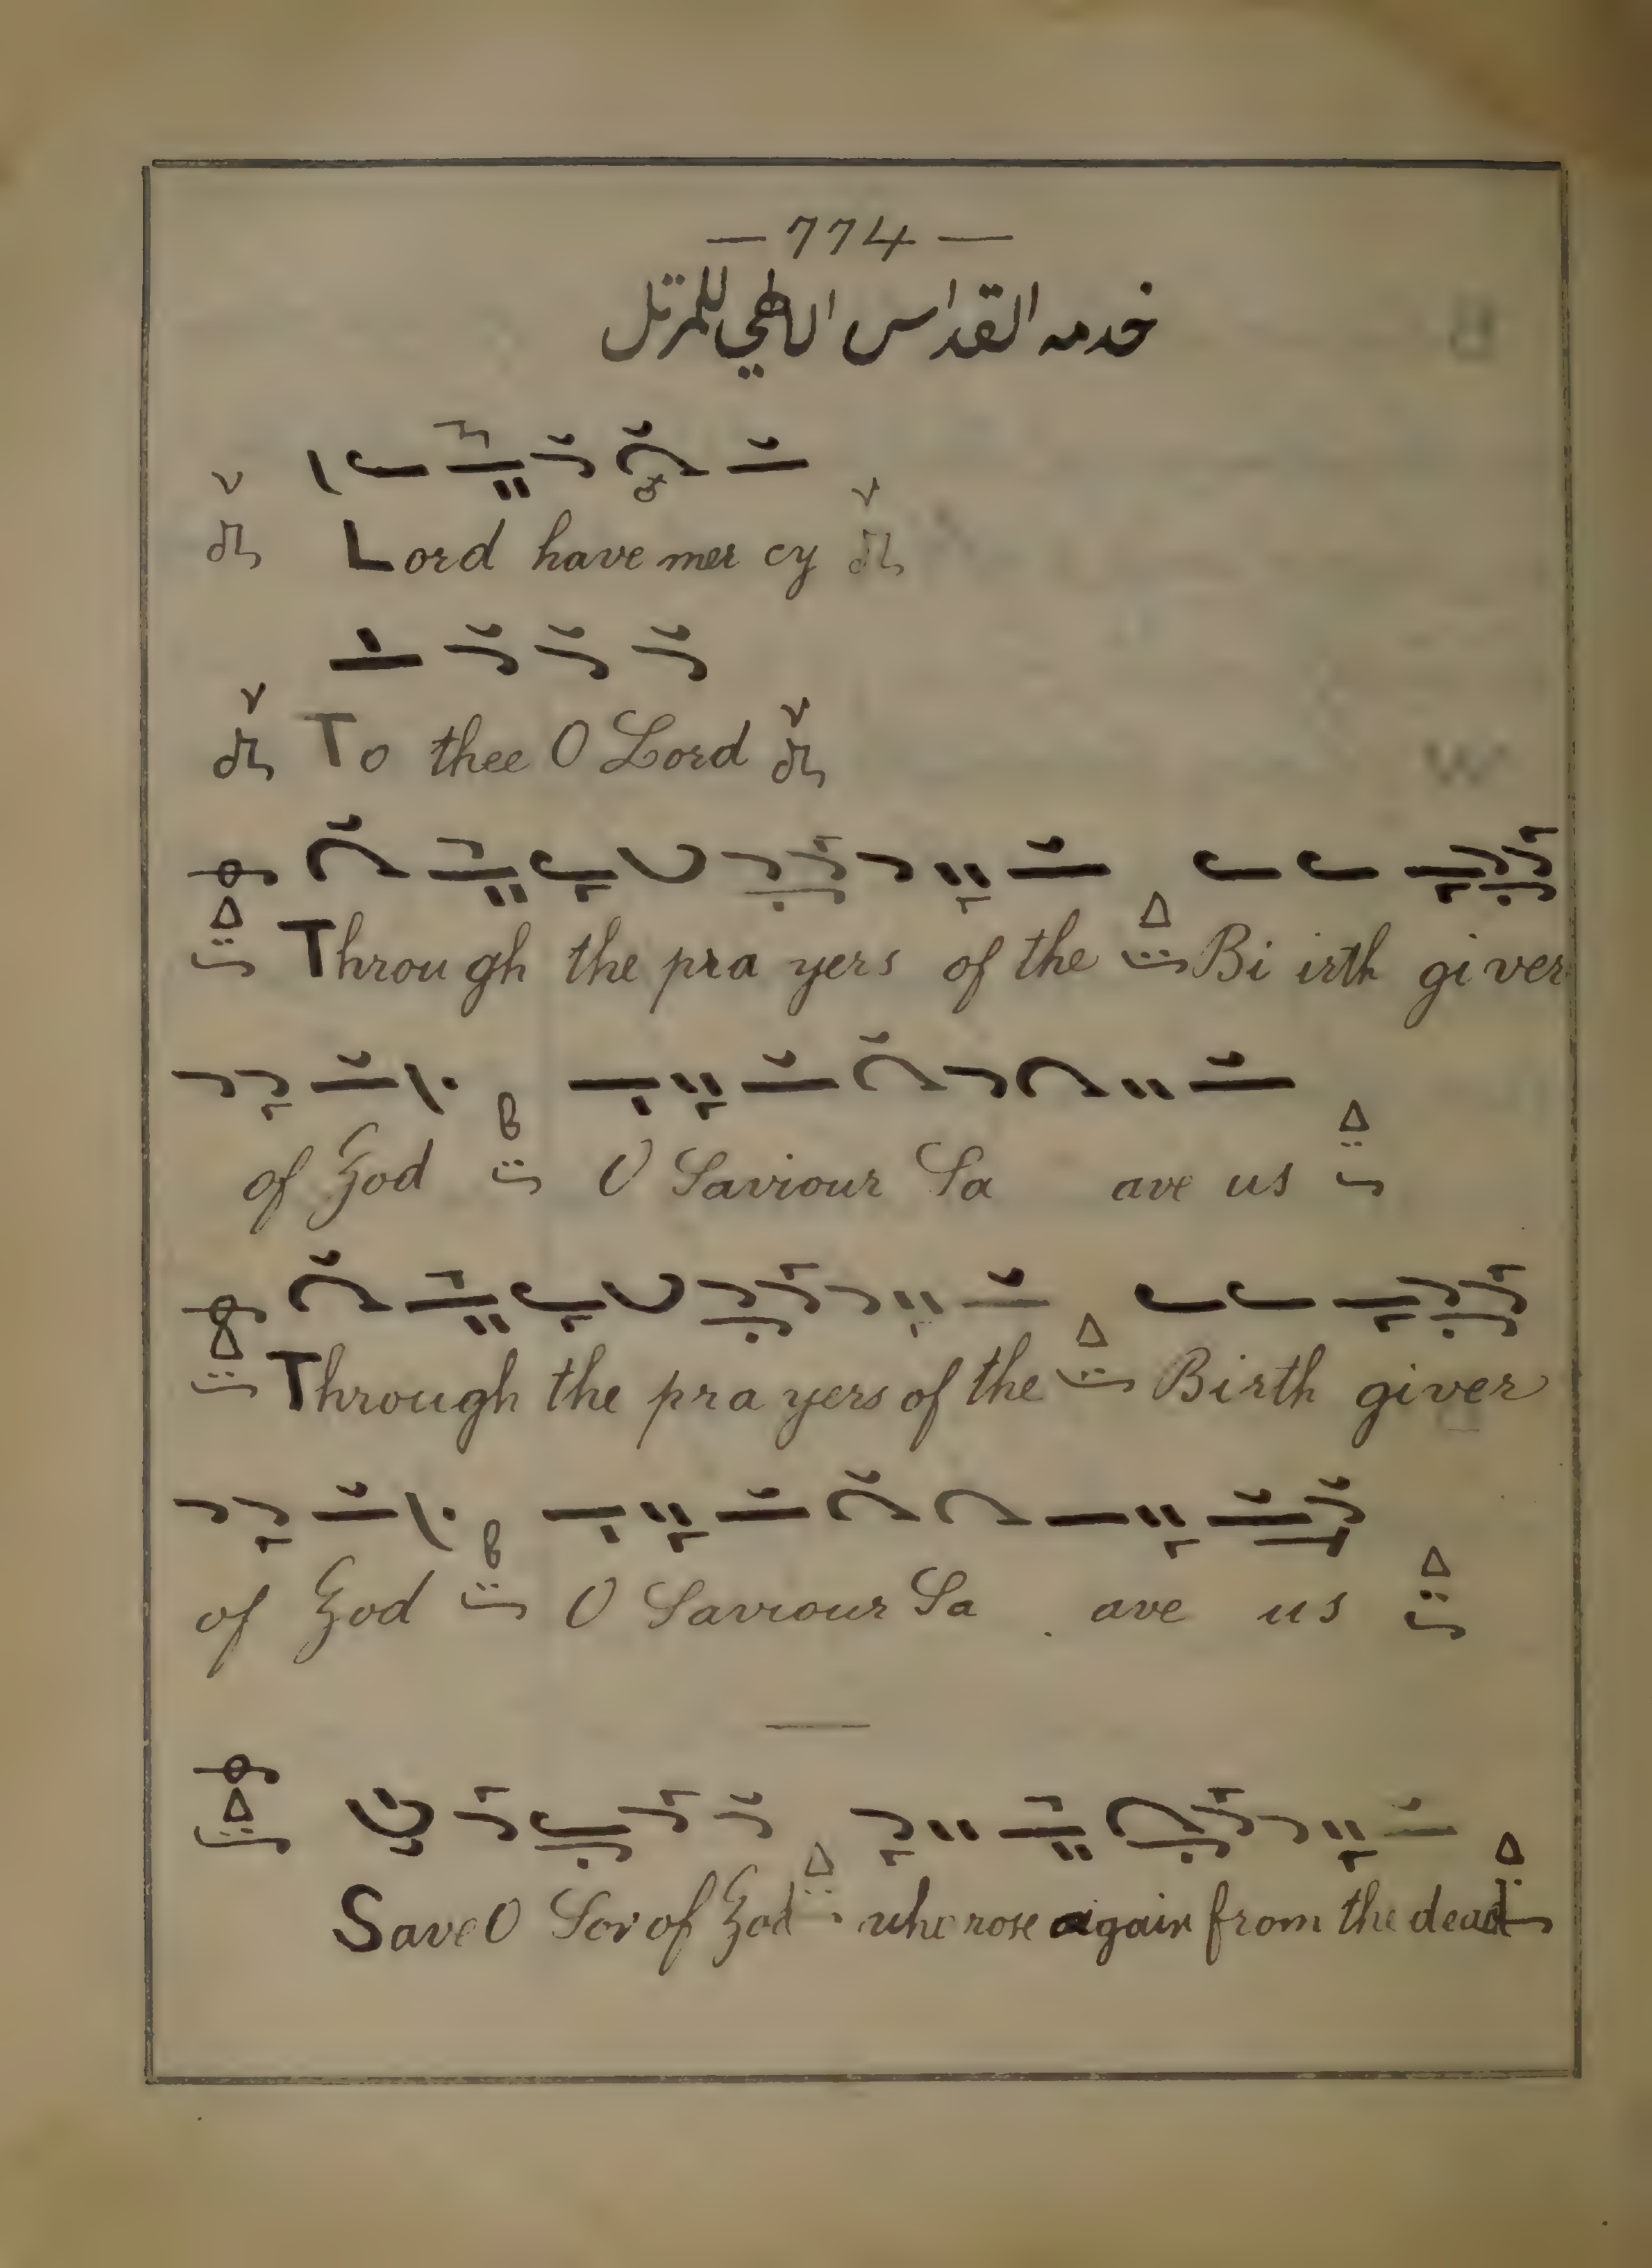 — 774 —
خدمه القداس الالهي للمرتل
Lord have mer cy
To thee O Lord
Throu gh the pra yers of the Bi irth giver
of God O Saviour Sa ave us
Through the pra yers of the Birth giver
of God O Saviour Sa ave us
Save O Son of God who rose again from the dead